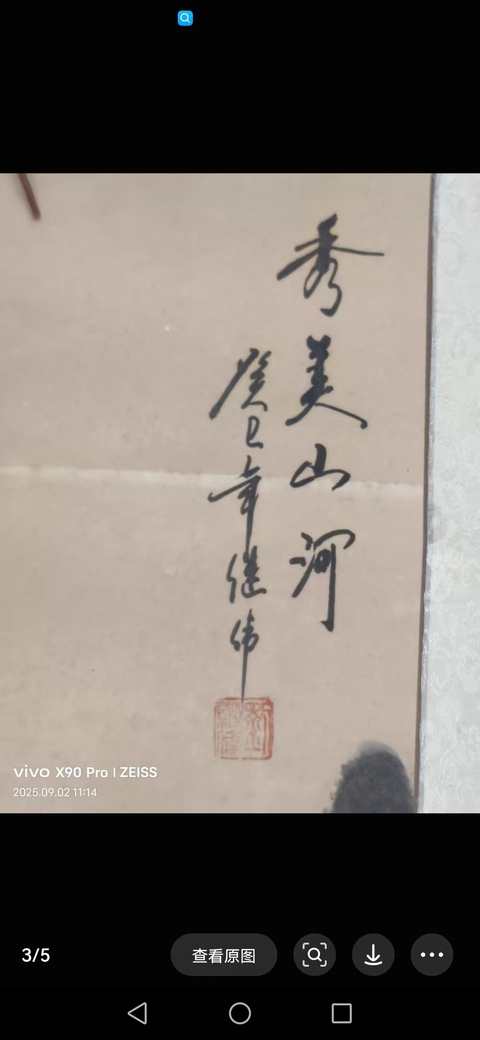 秀美山河
癸巳年继伟
vivo X90 Pro | ZEISS
2025.09.02 11:14
3/5
查看原图